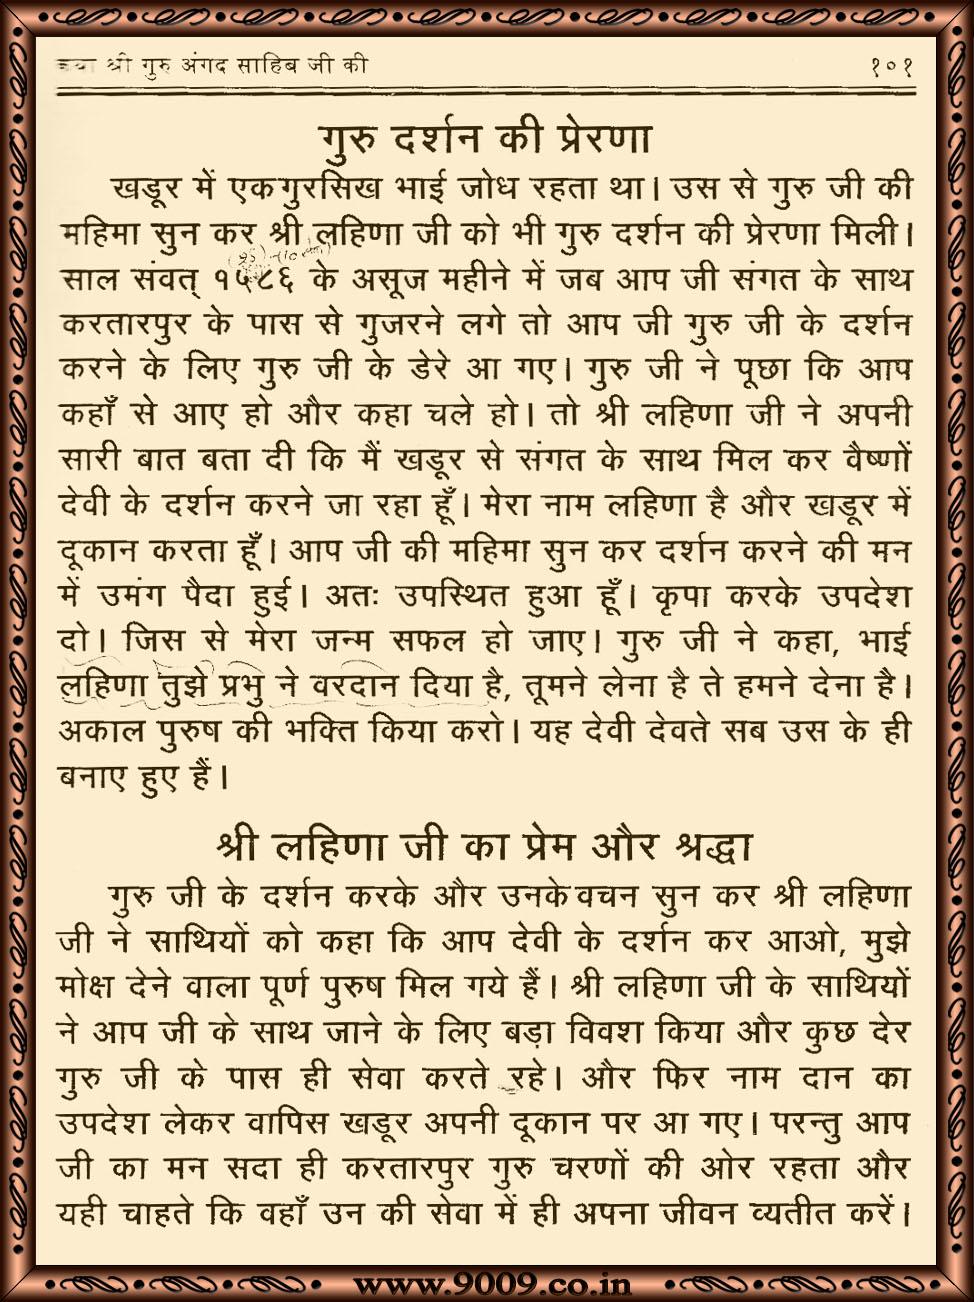 कथा श्री गुरु अंगद साहिब जी की १०१
गुरु दर्शन की प्रेरणा
खडूर में एक गुरसिख भाई जोध रहता था। उस से गुरु जी की
महिमा सुन कर श्री लहिणा जी को भी गुरु दर्शन की प्रेरणा मिली।
साल संवत् १५८६ के असूज महीने में जब आप जी संगत के साथ
करतारपुर के पास से गुजरने लगे तो आप जी गुरु जी के दर्शन
करने के लिए गुरु जी के डेरे आ गए। गुरु जी ने पूछा कि आप
कहाँ से आए हो और कहा चले हो। तो श्री लहिणा जी ने अपनी
सारी बात बता दी कि मैं खडूर से संगत के साथ मिल कर वैष्णों
देवी के दर्शन करने जा रहा हूँ। मेरा नाम लहिणा है और खडूर में
दूकान करता हूँ। आप जी की महिमा सुन कर दर्शन करने की मन
में उमंग पैदा हुई। अतः उपस्थित हुआ हूँ। कृपा करके उपदेश
दो। जिस से मेरा जन्म सफल हो जाए। गुरु जी ने कहा, भाई
लहिणा तुझे प्रभु ने वरदान दिया है, तूमने लेना है ते हमने देना है।
अकाल पुरुष की भक्ति किया करो। यह देवी देवते सब उस के ही
बनाए हुए हैं।
श्री लहिणा जी का प्रेम और श्रद्धा
गुरु जी के दर्शन करके और उनके वचन सुन कर श्री लहिणा
जी ने साथियों को कहा कि आप देवी के दर्शन कर आओ, मुझे
मोक्ष देने वाला पूर्ण पुरुष मिल गये हैं। श्री लहिणा जी के साथियों
ने आप जी के साथ जाने के लिए बड़ा विवश किया और कुछ देर
गुरु जी के पास ही सेवा करते रहे। और फिर नाम दान का
उपदेश लेकर वापिस खडूर अपनी दूकान पर आ गए। परन्तु आप
जी का मन सदा ही करतारपुर गुरु चरणों की ओर रहता और
यही चाहते कि वहाँ उन की सेवा में ही अपना जीवन व्यतीत करें।
www.9009.co.in